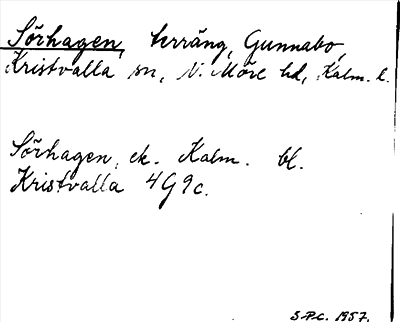 Sörhagen, terräng, Gunnabo,
Kristvalla sn, N. Möre hd, Kalm. l.
Sörhagen, ek. Kalm. bl.
Kristvalla 4G9c.
S.P.C. 1957.